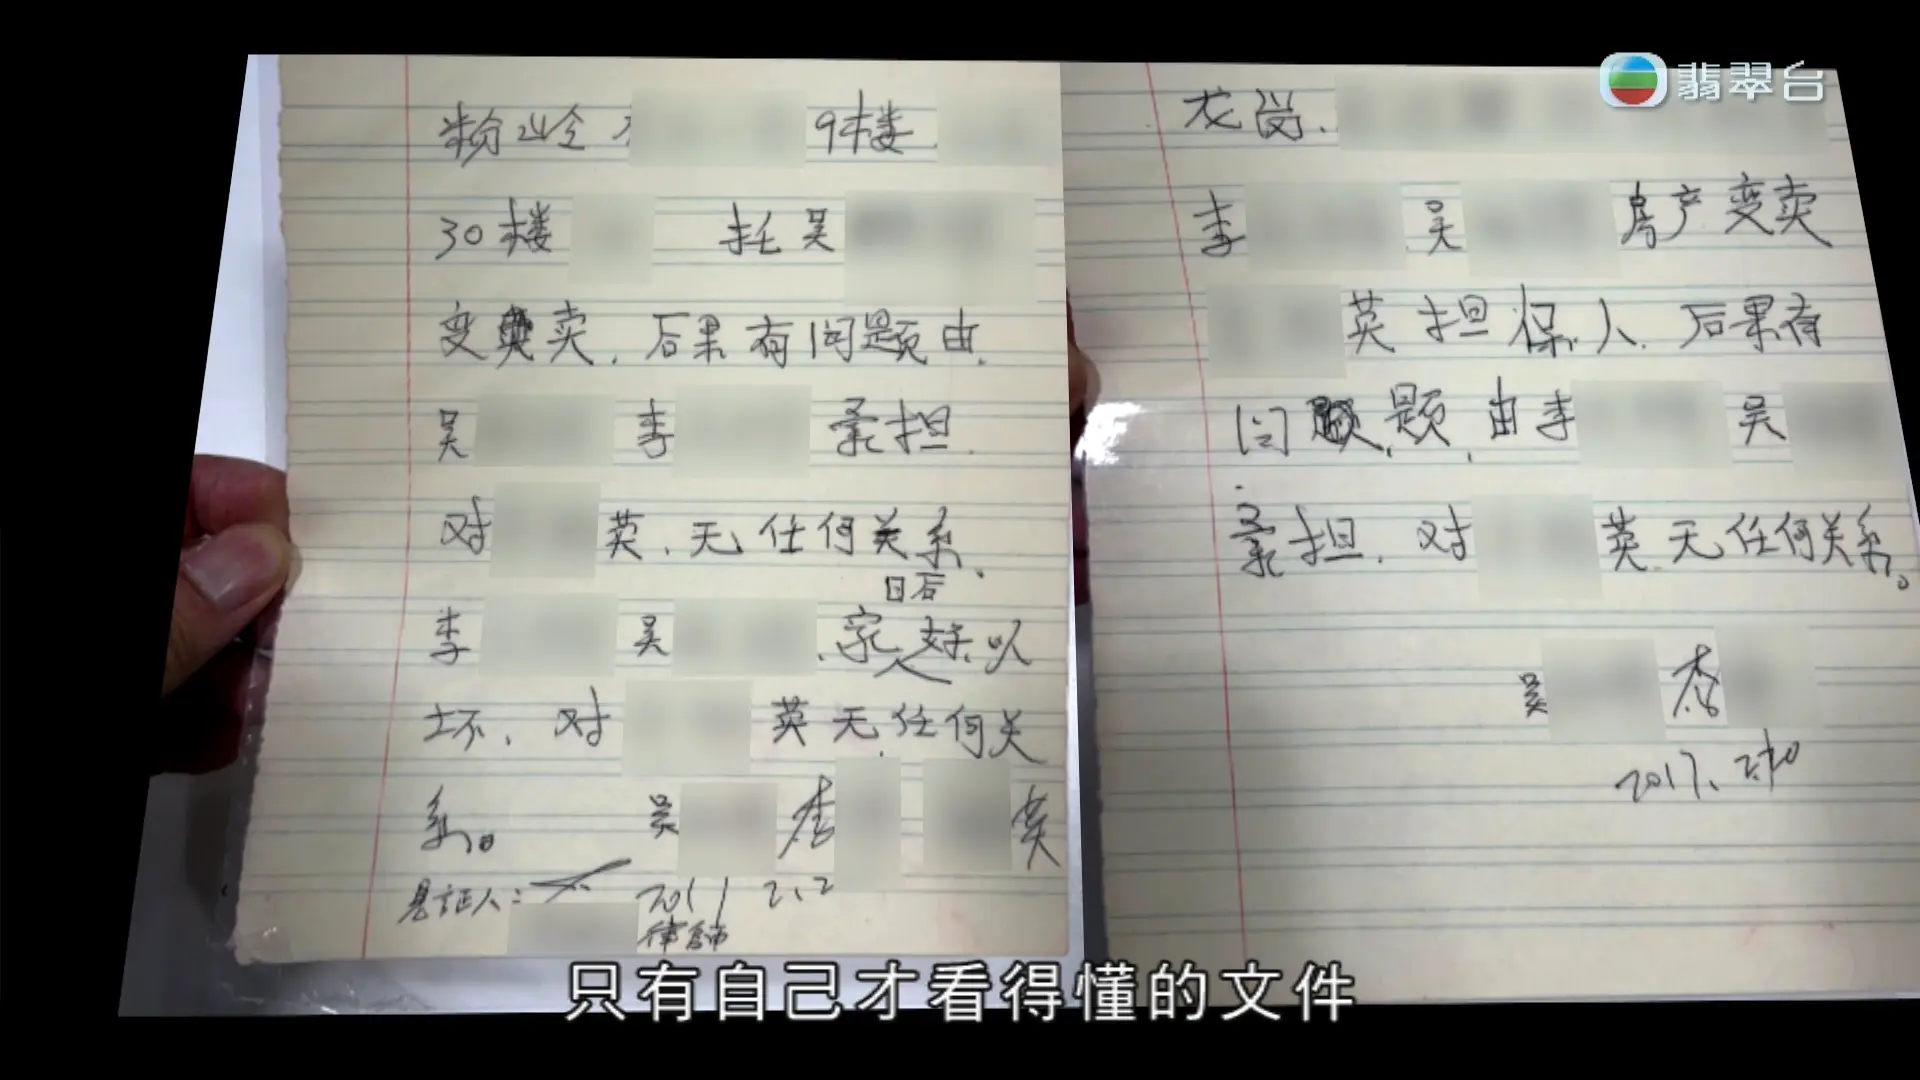 翡翠台
粉岭 9楼
30楼 托吴
变卖.后果有问题由.
吴 李 承担.
对 英.无任何关系.
日后
李 吴 .家人好.以
坏.对 英无.任何关
系。 吴 李 英
見証人: 2011 2.2
律師
龙岗.
李 吴 房产变卖
英担保人.后果有
问题.由李 吴
承担.对 英.无任何关系。
吴 李
2017.
只有自己才看得懂的文件